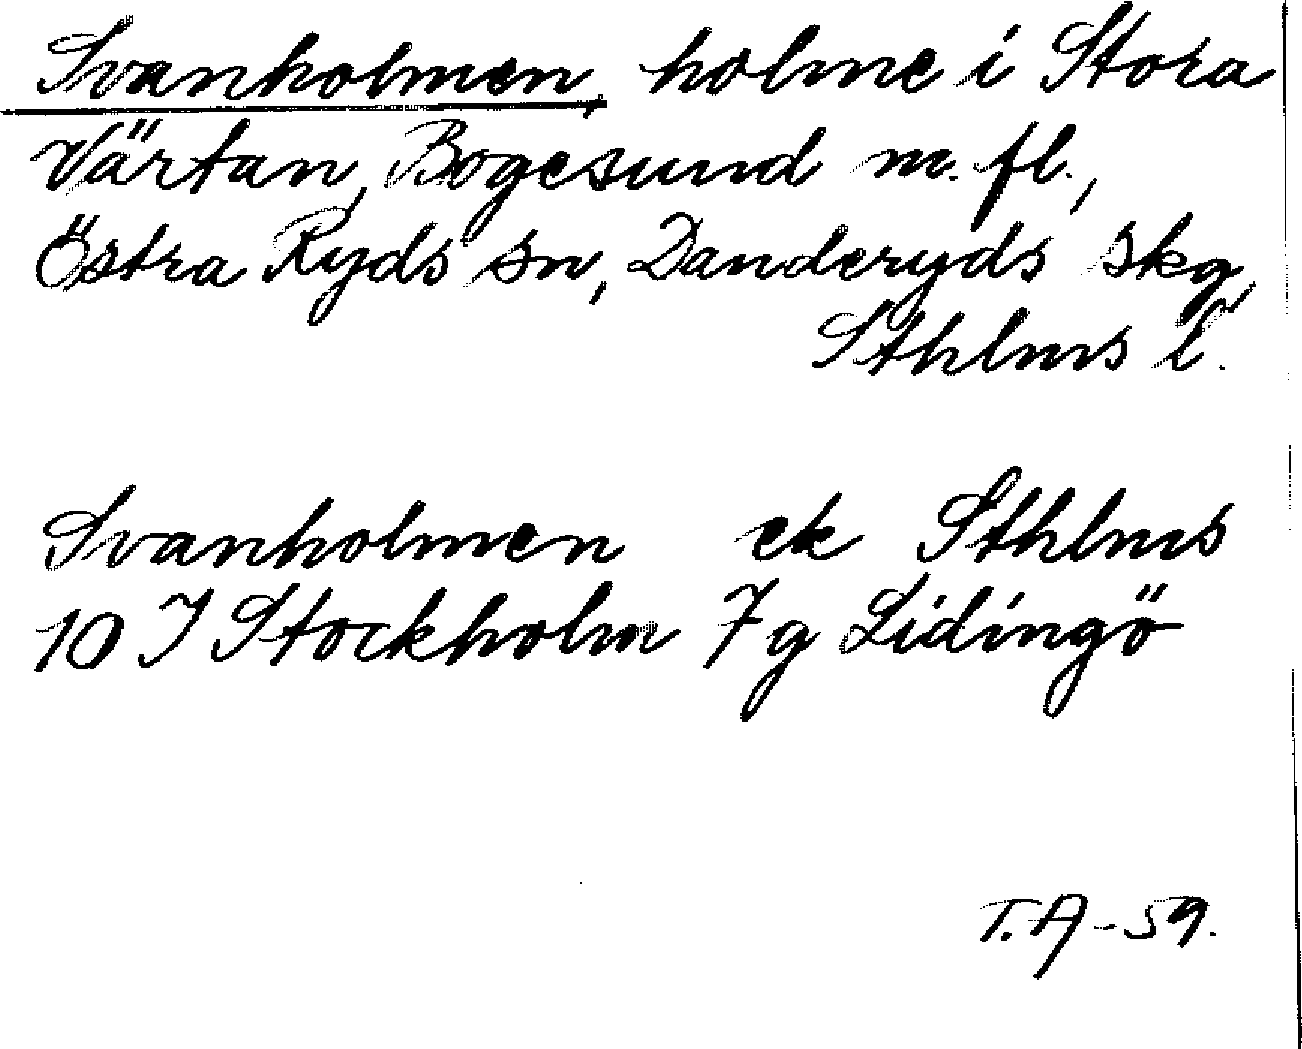 Svanholmen, holme i Stora
Värtan, Bogesund m.fl.,
Östra Ryds sn, Danderyds skg,
Sthlms l.
Svanholmen ek Sthlms
10 I Stockholm 7 g Lidingö
T.A-59.